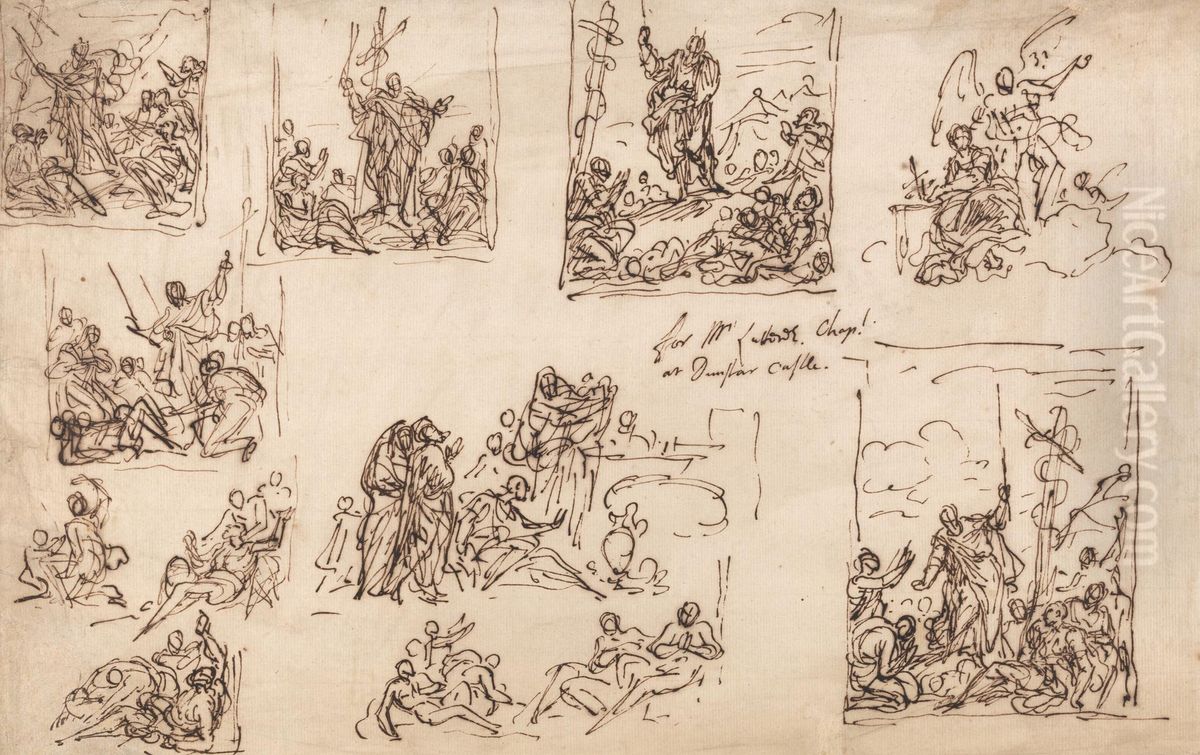 for Mr Lutterel's Chap.l
at Dunstar Castle.
NiceArtGallery.com